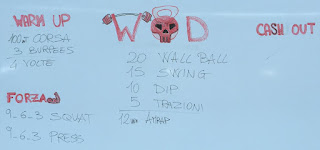 WARM UP
100m CORSA
3 BURPEES
4 VOLTE
FORZA
9-6-3 SQUAT
9-6-3 PRESS
WOD
20 WALL BALL
15 SWING
10 DIP
5 TRAZIONI
12min AMRAP
CASH OUT